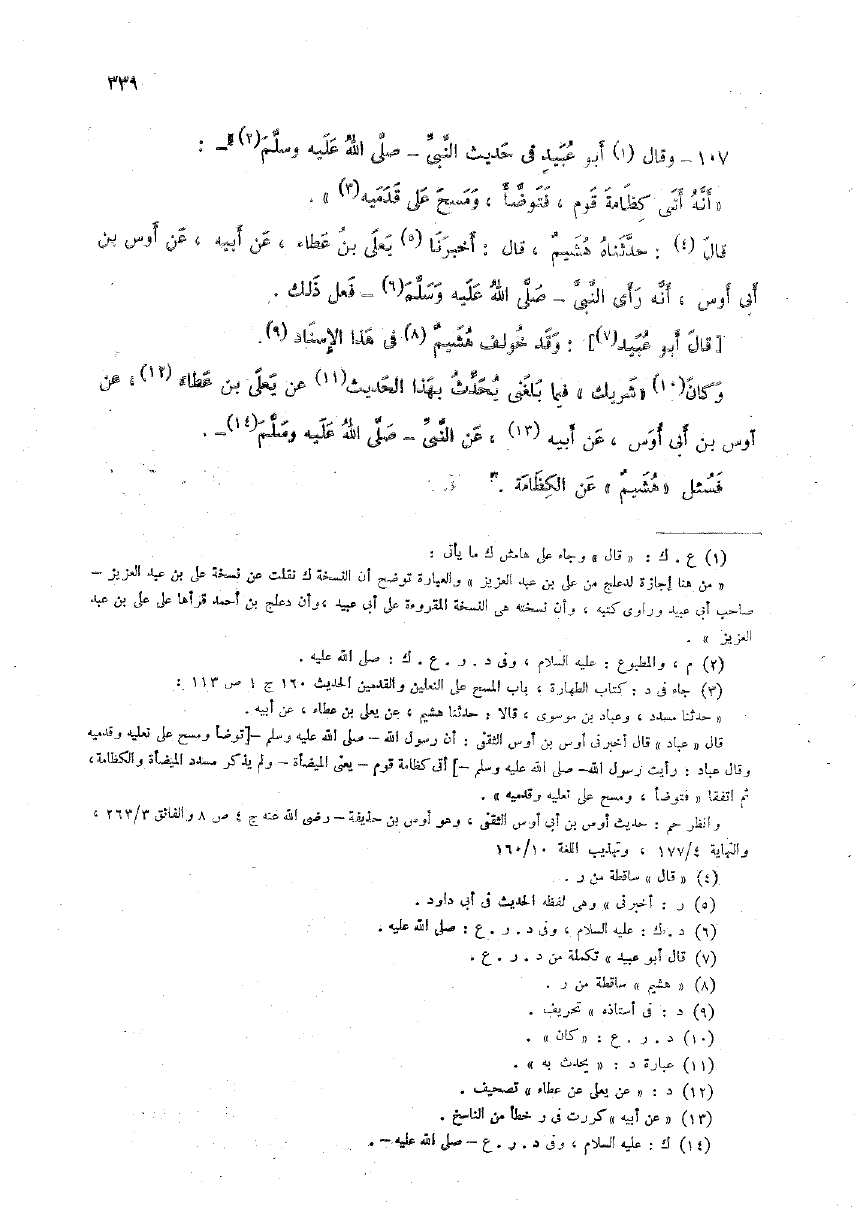 ٣٣٩
١٠٧ – وقال (١) أبو عُبَيدٍ فى حَديث النَّبِىِّ – صلَّى اللهُ عَلَيه وسلَّمَ (٢) – :
« أَنَّهُ أَتَى كِظَامةَ قَوم ، فَتَوضَّأَ ، وَمَسحَ عَلى قَدَمَيه (٣) » .
قالَ (٤) : حدَّثَناهُ هُشَيمٌ ، قال : أَخبرَنَا (٥) يَعلَى بنُ عَطاء ، عَن أَبيه ، عَن أَوس بن
أَبى أَوس ، أَنَّه رَأَى النَّبىَّ – صَلَّى اللهُ عَلَيه وَسَلَّمَ (٦) – فَعل ذَلك .
[ قالَ أَبو عُبَيد (٧) ] : وَقَد خُولف هُشَيمٌ (٨) فى هَذا الإِسنَاد (٩) .
وَكانَ (١٠) « شَريك » فيما بَلغَنى يُحَدِّثُ بِهَذا الحَديث (١١) عن يَعلَى بن عَطاء (١٢) ، عن
أوس بن أَبى أَوَس ، عَن أَبيه (١٣) ، عَن النَّبىِّ – صَلَّى اللهُ عَلَيه وسَلَّمَ (١٤) – .
فَسُئل « هُشَيمٌ » عَن الكِظَامَة .
(١) ع . ك : « قال » وجاء على هامش ك ما يأتى :
« من هنا إجازة لدعلج من على بن عبد العزيز » والعبارة توضح أن النسخة ك نقلت عن نسخة على بن عبد العزيز –
صاحب أبى عبيد وراوى كتبه ، وأن نسخته هى النسخة المقروءة على أبى عبيد ، وأن دعلج بن أحمد قرأها على على بن عبد
العزيز » .
(٢) م ، والمطبوع : عليه السلام ، وفى د . ر . ع . ك : صلى الله عليه .
(٣) جاء فى د : كتاب الطهارة ، باب المسح على النعلين والقدمين الحديث ١٦٠ ج ١ ص ١١٣ :
« حدثنا مسدد ، وعباد بن موسوى ، قالا : حدثنا هشيم ، عن يعلى بن عطاء ، عن أبيه .
قال « عباد » قال أخبرنى أوس بن أوس الثقفى : أن رسول الله – صلى الله عليه وسلم –[توضأ ومسح على نعليه وقدميه
وقال عباد : رأيت رسول الله – صلى الله عليه وسلم –] أتى كظامة قوم – يعنى الميضأة – ولم يذكر مسدد الميضأة والكظامة ،
ثم اتفقا « فتوضأ ، ومسح على نعليه وقدميه » .
وانظر حم : حديث أوس بن أبى أوس الثقفى ، وهو أوس بن حذيفة – رضى الله عنه ج ٤ ص ٨ والفائق ٢٦٣/٣ ،
والنهاية ١٧٧/٤ ، وتهذيب اللغة ١٦٠/١٠
(٤) « قال » ساقطة من ر .
(٥) ر : أخبرنى » وهى لفظه الحديث فى أبى داود .
(٦) د . ك : عليه السلام ، وفى د . ر . ع : صلى الله عليه .
(٧) قال أبو عبيد » تكملة من د . ر . ع .
(٨) « هشيم » ساقطة من ر .
(٩) د : فى أستاذه » تحريف .
(١٠) د . ر . ع : « كان » .
(١١) عبارة د : « يحدث به » .
(١٢) د : « عن يعلى عن عطاء » تصحيف .
(١٣) « عن أبيه » كررت فى ر خطأ من الناسخ .
(١٤) ك : عليه السلام ، وفى د . ر . ع – صلى الله عليه – .